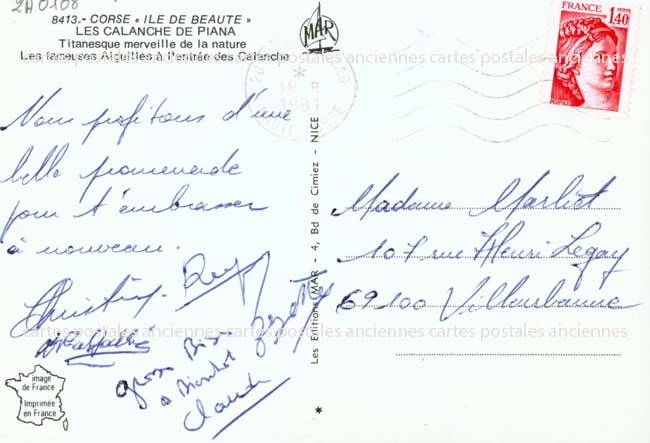 2A0108
8413.- CORSE « ILE DE BEAUTE »
LES CALANCHE DE PIANA
Titanesque merveille de la nature
Les fameuses Aiguilles à l'entrée des Calanche
MAR
FRANCE
1,40
18 -8
1981
CORSE
cartes postales anciennes cartes postales anciennes cartes postales anciennes
Nous profitons d'une
belle promenade
pour t'embrasser
à nouveau.
Christine
grosse Bise
à Bientôt
Claude
Les Editions MAR - 4, Bd de Cimiez - NICE
Madame Marliot
107 rue Henri Legay
69100 Villeurbanne
cartes postales anciennes cartes postales anciennes cartes postales anciennes
image
de France
Imprimée
en France